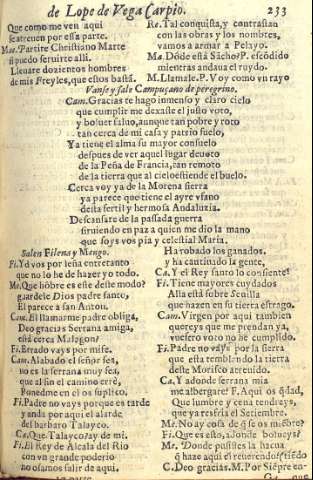 de Lope de Vega Carpio. 233
Que como me ven aqui
se atreuen por essa parte.
Mae. Partire Christiano Marte
si puedo seruirte alli.
Lleuare dozientos hombres
de mis Freyles, que estos bastã.
Re. Tal conquista, y contrastan
con las obras y los nombres,
vamos a armar a Pelayo.
Ma. Dõde està Sãcho? P. escõdido
mientras andaua el ruydo.
M. Llamale. P. Voy como vn rayo
Vanse y sale Campuçano de peregrino.
Cam. Gracias te hago inmenso y claro cielo
que cumplir me dexaste el justo voto,
y boluer saluo, aunque tan pobre y roto
tan cerca de mi casa y patrio suelo,
Ya tiene el alma su mayor consuelo
despues de ver aquel lugar deuoto
de la Peña de Francia, tan remoto
de la tierra que al cielo estiende el buelo.
Cerca voy ya de la Morena sierra
ya parece que tiene el ayre vfano
desta fertil y hermosa Andaluzia.
Descansare de la passada guerra
siruiendo en paz a quien me dio la mano
que soys vos pia y celestial Maria.
Salen Filena y Nengo.
Fi. Ydvos por leña entretanto
que no lo he de hazer yo todo.
Me. Que hõbre es este deste modo?
guardele Dios padre santo,
El parece a san Anton.
Cam. El llamarme padre obliga,
Deo gracias Serrana amiga,
està cerca Malagon?
Fi. Errado vays por mi fe.
Cam. Alabado el señor sea,
no es la serrana muy fea,
que al fin el camino errè,
Ponedme en el os suplico,
Fi. Padre no vays porque es tarde
y anda por aqui el alarde
del barbaro Talayco.
Ca. Que Talayco? ay de mi.
Fi. El Rey de Alcala del Rio
con vn grande poderio
no osamos salir de aqui.
Ha robado los ganados,
y ha cautiuado la gente,
Ca. Y el Rey santo lo consiente?
Fi. Tiene mayores cuydados
Alla està sobre Seuilla
que hazen en su tierra estrago.
Cam. Virgen por aqui tambien
quereys que me prendan ya,
vuestro voto no he cumplido.
Fi. Padre no vays por la sierra
que esta temblando la tierra
deste Morisco atreuido.
Ca. Y adonde serrana mia
me albergarè? F. Aqui os q̃dad,
Que lumbre y cena tendreys,
que ya resfria el Setiembre.
Me. No ay cosa de q̃ se os miẽbre?
Fi. Que es esto, a Donde bolueys?
Me. Donde pusistes la hacha
q̃ haze aqui el reuerendissimo
C. Deo gracias. M. Por Sièpre en-